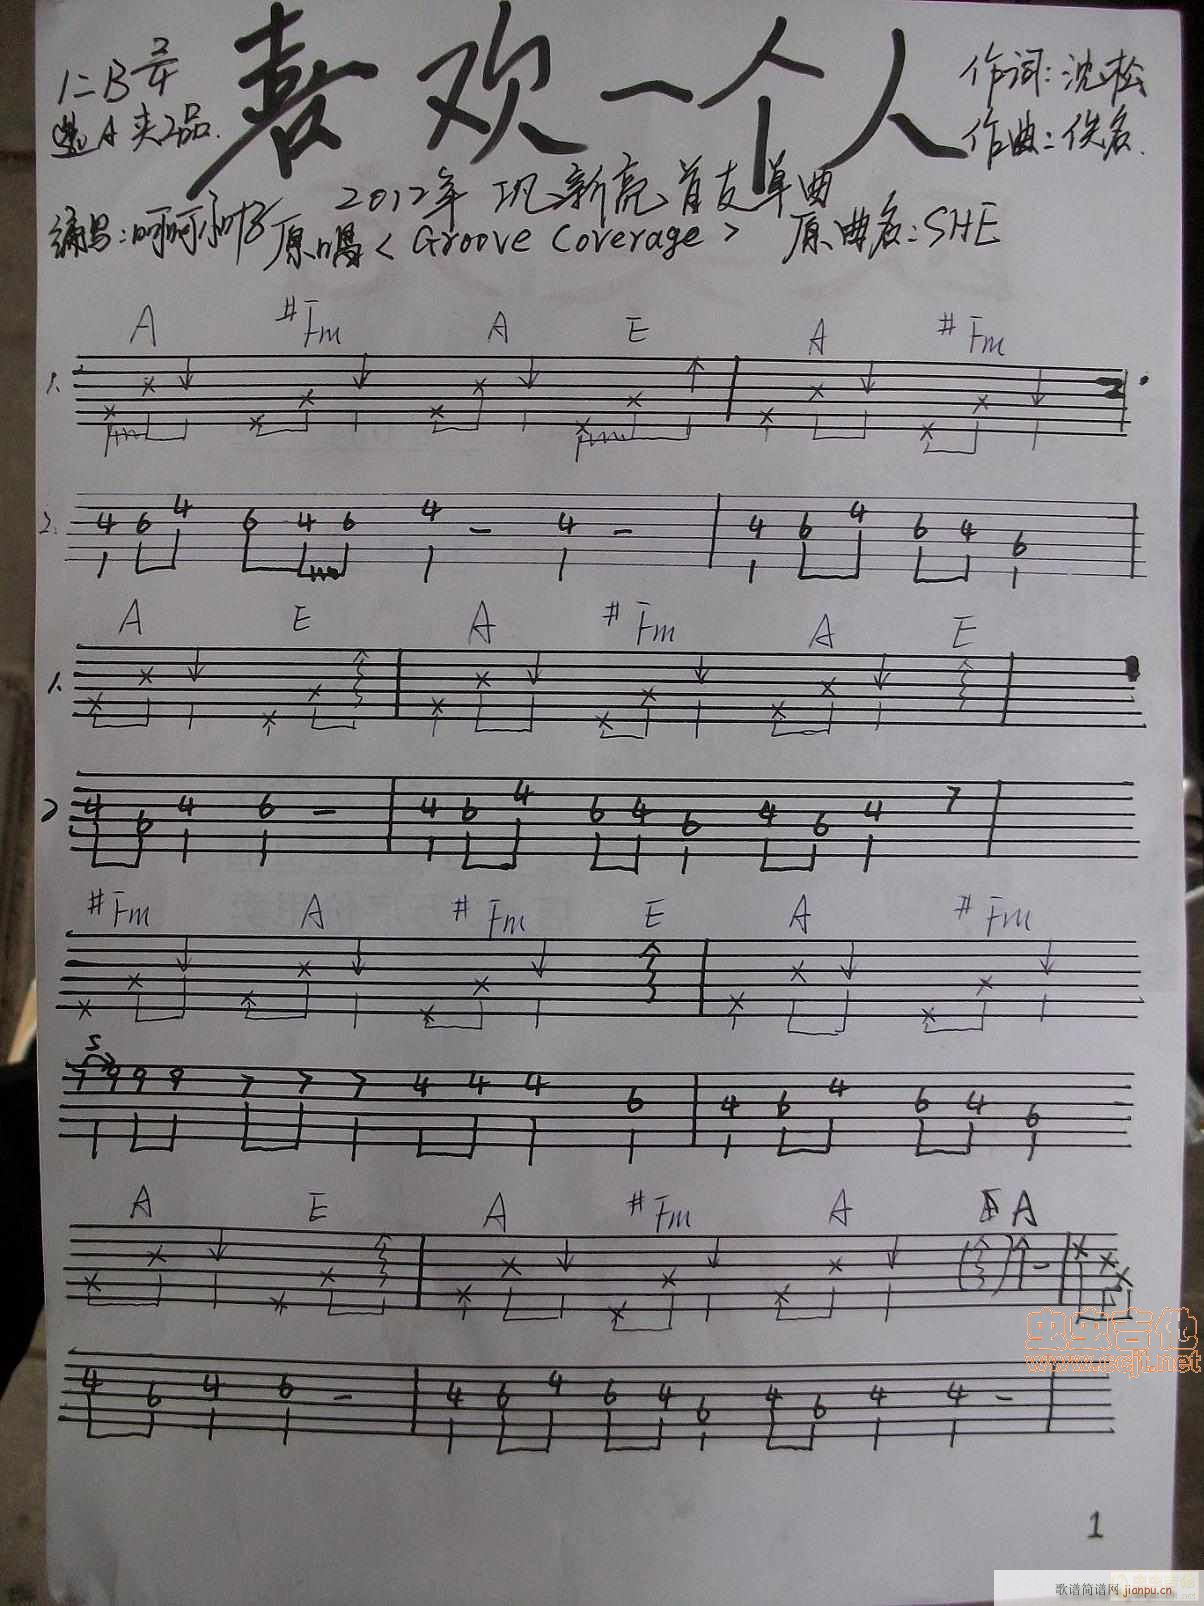 喜欢一个人
1=B 2/4
选A夹2品.
作词:沈松
作曲:佚名.
2012年 巩新亮首支单曲
编写:呵呵小叶子 原唱<Groove Coverage> 原曲名:SHE
A #Fm A E A #Fm
1.
2. 4 6 4 6 4 6 4 - 4 - 4 6 4 6 4 6
A E A #Fm A E
1.
2 4 6 4 6 - 4 6 4 6 4 6 4 6 4 7
#Fm A #Fm E A #Fm
S
7 9 9 9 7 7 7 4 4 4 6 4 6 4 6 4 6
A E A #Fm A A
4 6 4 6 - 4 6 4 6 4 6 4 6 4 4 -
虫虫吉他
www.ccjt.net
1
歌谱简谱网 jianpu.cn